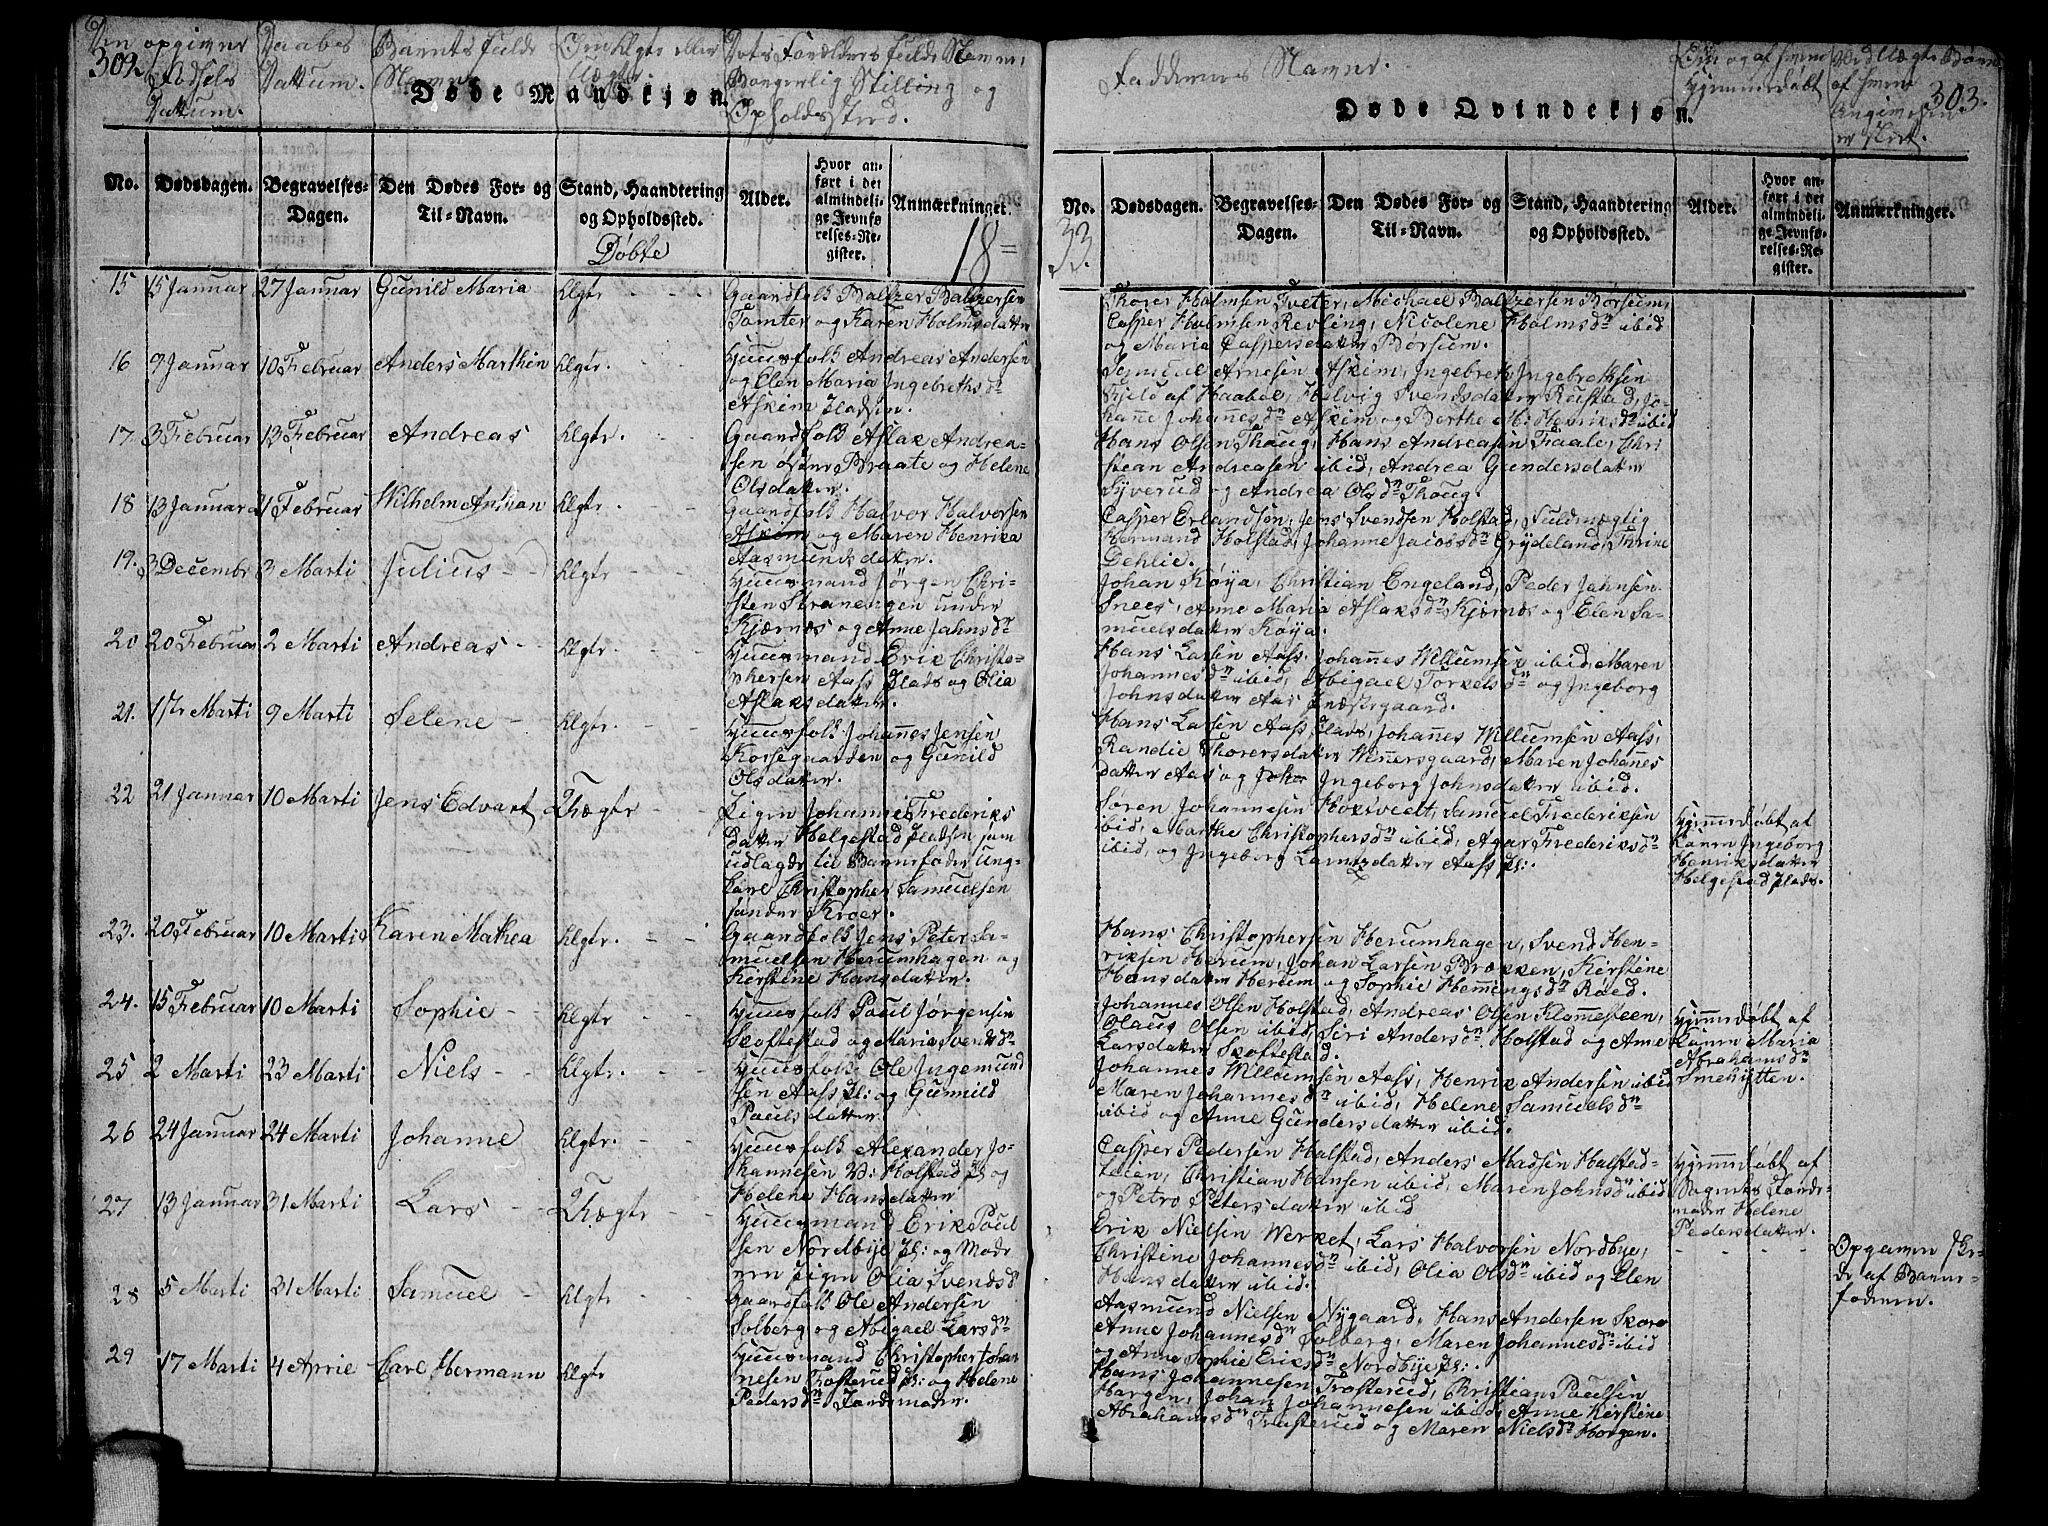 309.
Den opgivne
Födsels
Dattum.
Daabs
Dattum.
Barnets fulde
Navn
Om Ægte eller
Uægte.
Dets Forældres fulde Navne,
Borgerlig Stilling og
Opholdssted.
Døde Mandkjøn.
No.
Dødsdagen.
Begravelses-
Dagen.
Den Dødes For- og
Til-Navn.
Stand, Haandtering
og Opholdssted.
Døbte
Alder.
Hvor an-
ført i det
almindeli-
ge Jevnfø-
relses-Re-
gister.
Anmærkninger.
18
15 15 Januar 27 Januar Gunild Maria Ægte
Gaardfolk Baltzer Baltzersen
Tomter og Karen Holmsdatter
16 9 Januar 10 Februar Anders Marthin Ægte
Huusfolk Andreas Andersen
og Elen Maria Ingebrethsdr
Askim Pladsen.
17. 3 Februar 13 Februar Andreas Ægte.
Gaardfolk Aslak Andrea-
sen øster Braate og Helene
Olsdatter.
18 13 Januar 21 Februar Wilhelm Ægte
Gaardfolk Halvor Halvorsen
Askim og Maren Henrika
Aasmundsdatter.
19. 3 Decembr 3 Marti Julius Ægte
Huusmand Jørgen Chri-
sten Stranengen under
Kjærnes og Anne Jahnsdr
20 20 Februar 2 Marti Andreas Ægte
Huusmand Erik Christo-
phersen Aass Plads og Olia
Aslaksdatter.
21. 1ste Marti 9 Marti Selene Ægte.
Huusfolk Johannes Jensen
Korsegaarden og Gunild
Olsdatter.
22 21 Januar 10 Marti Jens Edvart Uægte
Pigen Johanne Frederiks
datter Helgestad Pladsen som
udlagde til Barnefader Ung-
karl Christopher Samuelsen
sønder Kroer.
23. 20 Februar 10 Marti Karen Mathea Ægte.
Gaardfolk Jens Peter Sa-
muelsen Herumhagen og
Kirstine Hansdatter.
24. 15 Februar 10 Marti Sophie Ægte
Huusfolk Paul Jørgensen
Skoftestad og Maria Svendsdr
25 2 Marti 23 Marti Niels Ægte.
Huusfolk Ole Ingemund
sen Aass Pl: og Gunnild
Paulsdatter
26 24 Januar 24 Marti Johanne Ægte.
Huusfolk Alexander Jo-
hannesen V: Holstad Pl og
Helene Hansdatter
27 13 Januar 31 Marti Lars Uægte
Huusmand Erik Paul
sen Nordbye Pl: og Mode
ren Pigen Olia Svendsdr
28 5 Marti 31 Marti Samuel Ægte
Gaardfolk Ole Andersen
Solberg og Abigael Larsdr
29 17 Marti 4 April Carl Hermann Ægte
Huusmand Christopher Johan
nesen Trosterud Pl: og Helene
Pedersdr
Faddernes Navne.
303.
Døde Qvindekjøn.
33.
No.
Dødsdagen.
Begravelses-
Dagen.
Den Dødes For- og
Til-Navn.
Stand, Haandtering
og Opholdssted.
Alder.
Hvor an-
ført i det
almindeli-
ge Jevnfø-
relses-Re-
gister.
Anmærkninger.
Thorer Holmsen Tveter, Michael Baltzersen Børsum,
Casper Holmsen Revling, Nicolene Holmsdr ibid
og Maria Caspersdatter Børsum.
Semund Arnesen Askim, Ingebreth Ingebrethsen
Fjeld af Haabøl, Helvig Svendsdatter Rustad, Jo-
hanne Johannesdr Askim og Berthe M: Henriksdr ibid
Hans Olsen Thoug, Hans Andreasen Fraale, Chri-
stean Andreasen ibid, Andrea Gundersdatter
Syverud og Andrea Olsdr Thoug.
Casper Erlandsen, Jens Svendsen Holstad, Fuldmægtig
Hermand Holstad, Johanne Jacobsdr Grydeland, Thrine
Dehlie.
Johan Køya, Christian Engeland, Peder Jahnsen
Snees, Anne Maria Aslaksdr Kjernes og Elen Sa-
muelsdatter Køya.
Hans Larsen Aass, Johannes Willumsen ibid, Maren
Johannesdr ibid, Abigael Torkelsdr og Ingeborg
Johnsdatter Aas Præstegaard.
Hans Larsen Aass Plads, Johannes Willumsen Aass,
Randie Thorersdatter Wennersgaard, Maren Johanes
datter Aas og Ingeborg Johnsdatter ibid.
Søren Johannesen Hoxvedt, Samuel Frederiksen
ibid, Marthe Christophersdr ibid, Agar Frederiksdr
ibid, og Ingeborg Larntzdatter Aass Pl:
Hjemmedøbt af
Karen Ingeborg
Henriksdatter
Helgestad Plads.
Hans Christophersen Herumhagen, Svend Hen-
riksen Herum, Johan Larsen Brækken, Kirstine
Hansdatter Herum og Sophie Hemmingsdr Raed.
Johannes Olsen Holstad, Andreas Olsen Klommesteen,
Olaus Olsen ibid, Siri Andersdr Holstad og Anne
Larsdatter Skoftestad.
Hjemmedøbt af
Karen Maria
Abrahamsdr
Smehytten.
Johannes Willumsen Aass, Henrik Andersen ibid
Maren Johannesdr ibid, Helene Samuelsdr
ibid og Anne Gundersdatter ibid.
Casper Pedersen Holstad, Anders Madsen Holstad-
Leien, Christian Hansen ibid, Maren Johnsdr ibid
og Petro Petersdatter ibid
Hjemmedøbt af
Sognets Jorde-
moder Helene
Pedersdatter.
Erik Nielsen Werket, Lars Halvorsen Nordbye,
Christine Johannesdr ibid, Olia Olsdr ibid og Elen
Hansdatter ibid.
af Barne-
faderen.
Aasmund Nielsen Nygaard, Hans Andersen Skoro
Anne Johannesdr Solberg, Maren Johannesdr ibid
og Anne Sophie Eriksdr Nordbye Pl:.
Hans Johannesen Trosterud, Christian Paulsen
Horgen, Johan Johannesen ibid, Anne Kirstine
Abrahamsdr Trosterud og Maren Nielsdr Horgen.